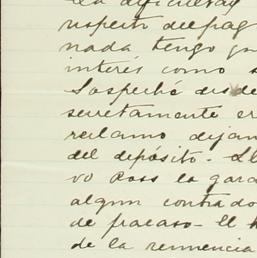 la dificultad
respecto del pag
nada tengo qu
interés como s
Sospeché desde
secretamente er
reclamo dejan
del depósito - Ll
vo Ross la gara
algun contrado
de fracaso - El h
de la renuncia